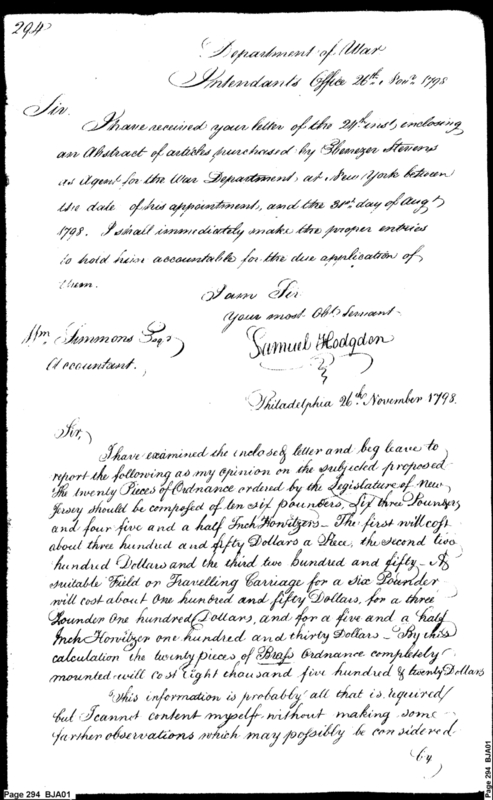 294
Department of War
Intendants Office 26th. Novr. 1798
Sir.
I have received your letter of the 24th inst, enclosing
an Abstract of articles, purchased by Ebenezer Stevens
as Agent for the War Department, at New York between
the date of his appointment, and the 31st. day of Augt
1798. I shall immediately make the proper entries
to hold him accountable for the due application of
them.
I am Sir
Your most Obt Servant
Wm Simmons Esqr
Samuel Hodgdon
Accountant.
Philadelphia 26th November 1798.
Sir,
I have examined the inclosed letter and beg leave to
report the following as my opinion on the subjected proposed.
The twenty Pieces of Ordnance ordered by the Legislature of New
Jersey should be composed of ten six pounders, Six three Pounders
and four five and a half Inch Howitzers – The first will cost
about three hundred and fifty Dollars a Piece, the second two
hundred Dollars and the third two hundred and fifty – A
suitable Field or Travelling Carriage for a Six Pounder
will cost about One hundred and fifty Dollars, for a three
Pounder One hundred Dollars, and for a five and a half
Inch Howitzer one hundred and thirty Dollars – By this
calculation the twenty pieces of Brass Ordnance completely
mounted will cost eight thousand five hundred & twenty Dollars
This information is probably all that is required
but I cannot content myself without making some
farther observations which may possibly be considered
by
Page 294 BJA01
Page 294 BJA01